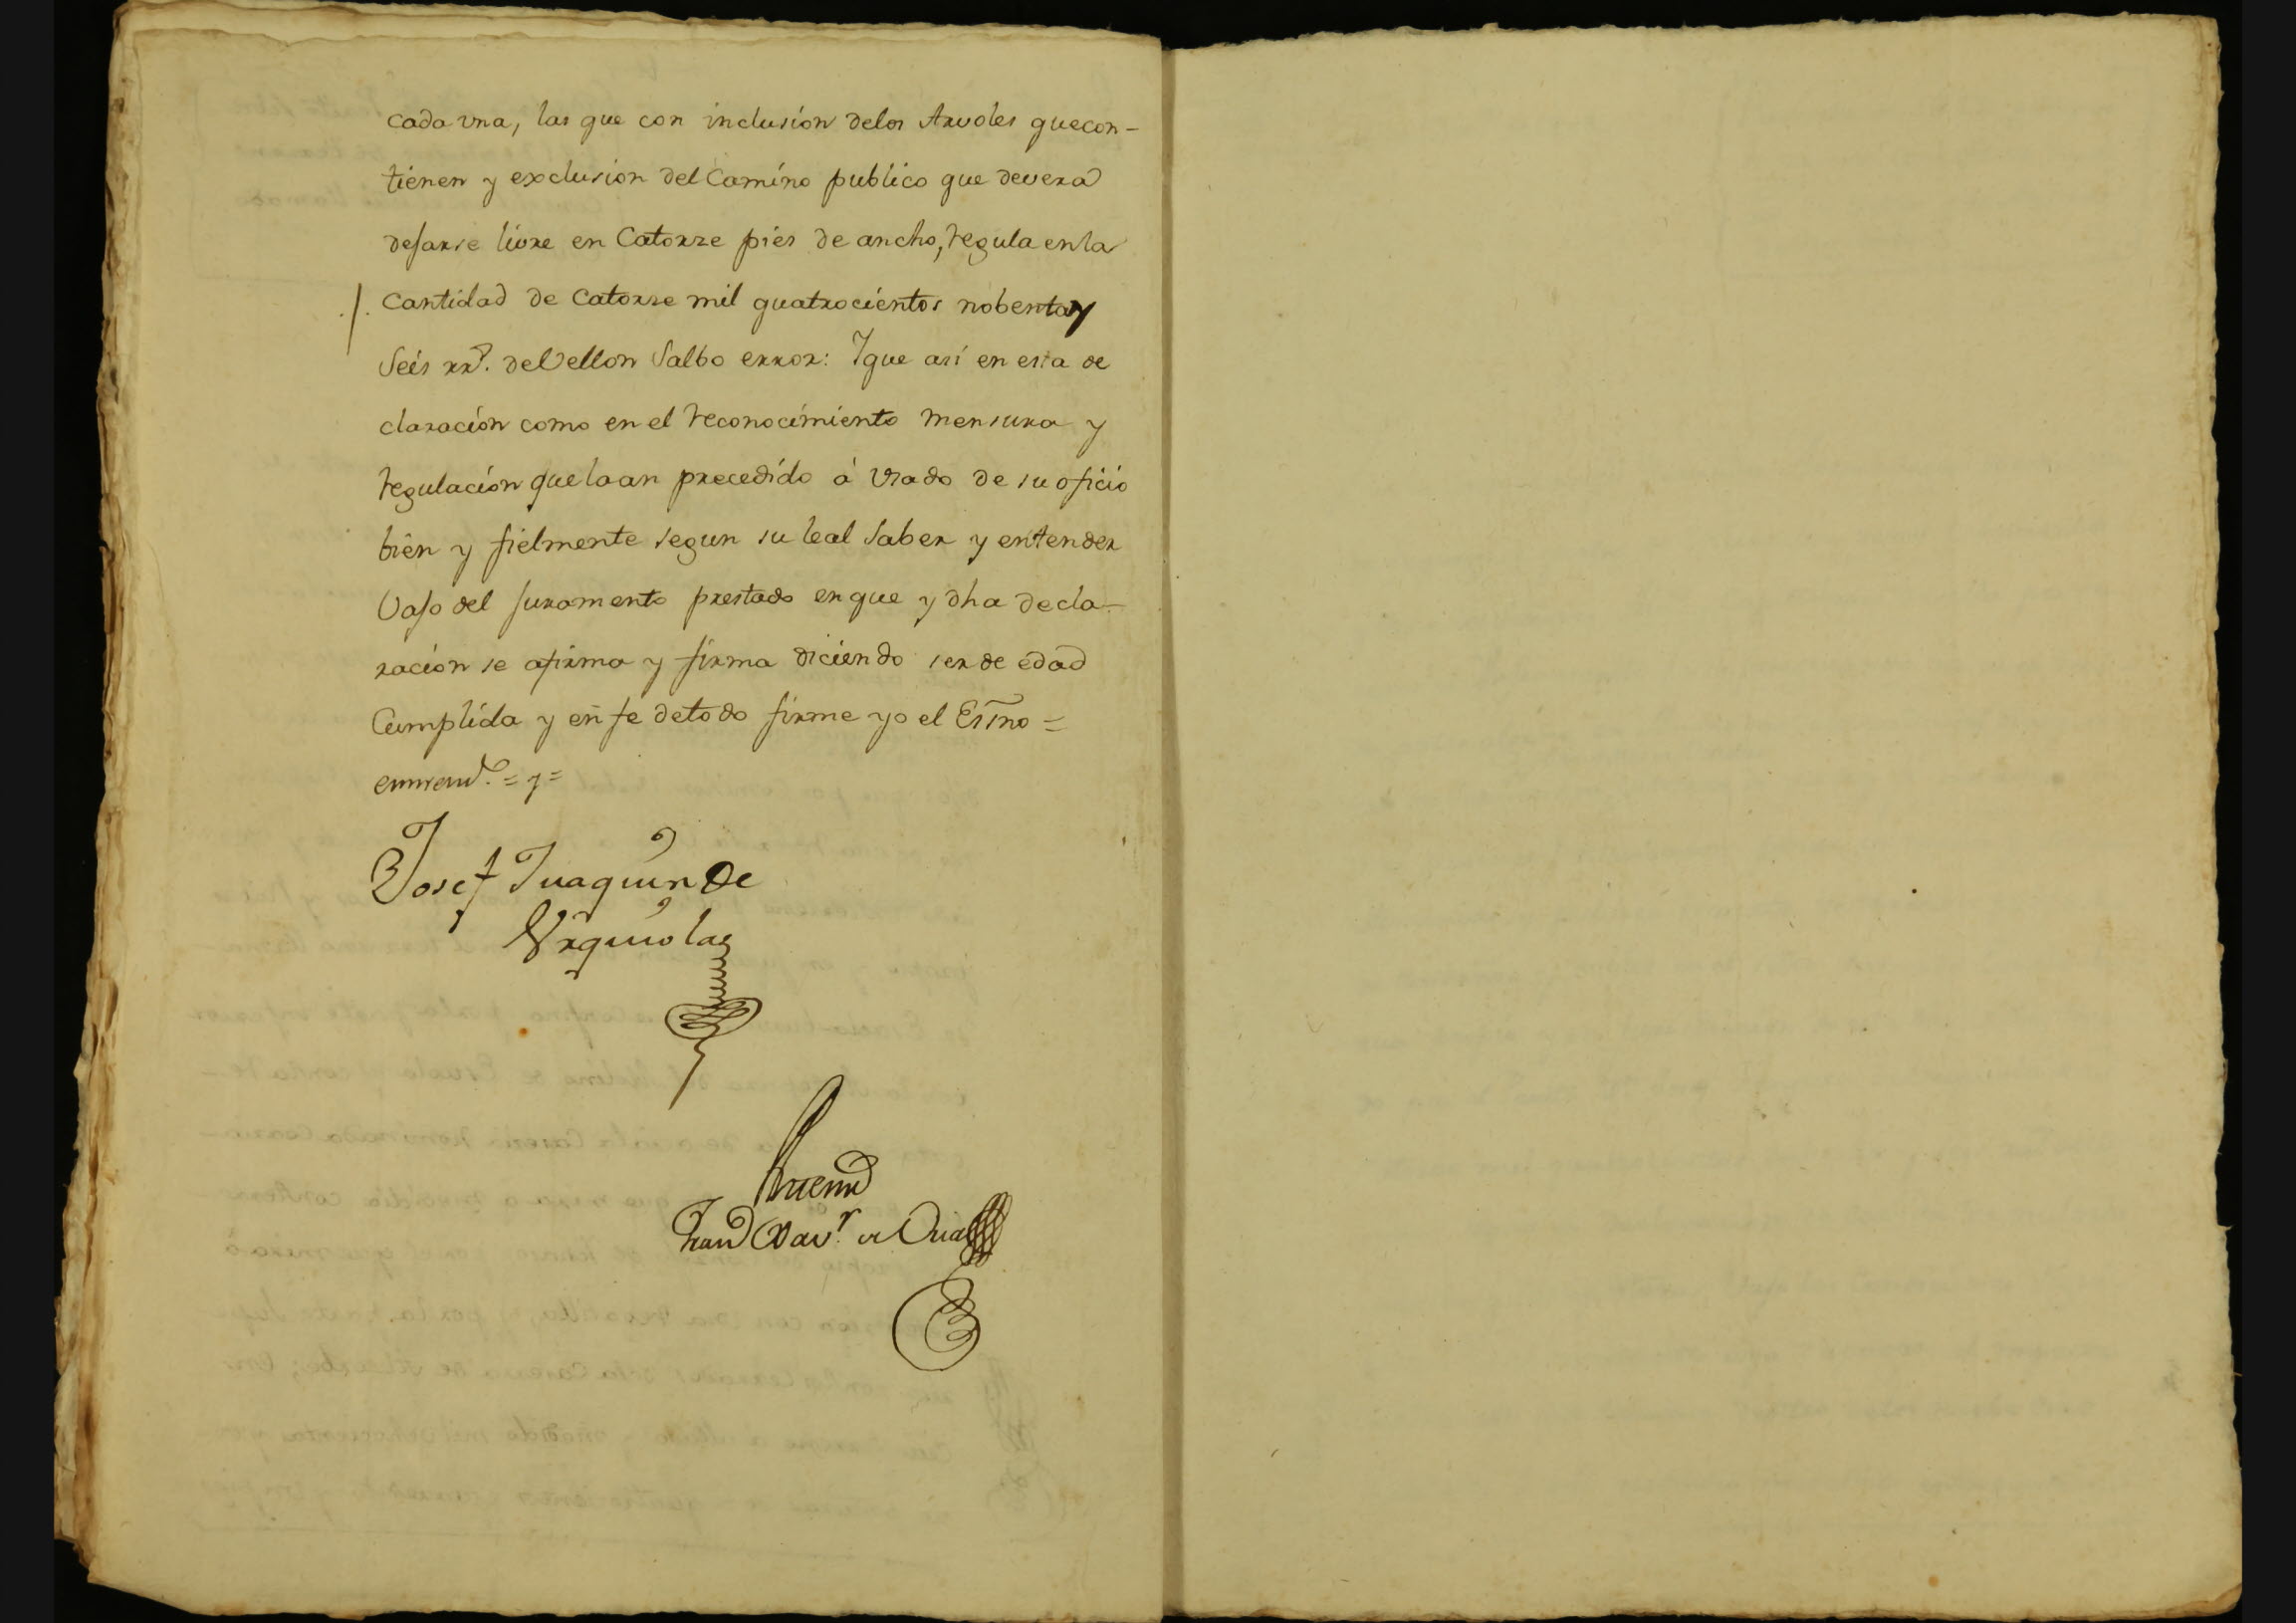 cada vna, las que con inclusion delos Arvoles quecon-
tienen y exclusion del Camino publico que devera
dejarse livre en Catorze pies de ancho, regula enla
./. Cantidad de Catorze mil quatrocientos nobentay
Seis rr.^s deVellon Salbo error: Ique asi en esta de
claracion como en el reconocimiento mensura y
regulacion quelaan precedido á vsado de su oficio
bien y fielmente segun su leal saber y entender
Vajo del juramento prestado enque y dha decla-
racion se afirma y firma diciendo ser de edad
Cumplida y en fe detodo firme yo el Esno =
enmend.^o = y =
Josef Juaquin de
Vrquiola
Fran.^co Xav.^r de